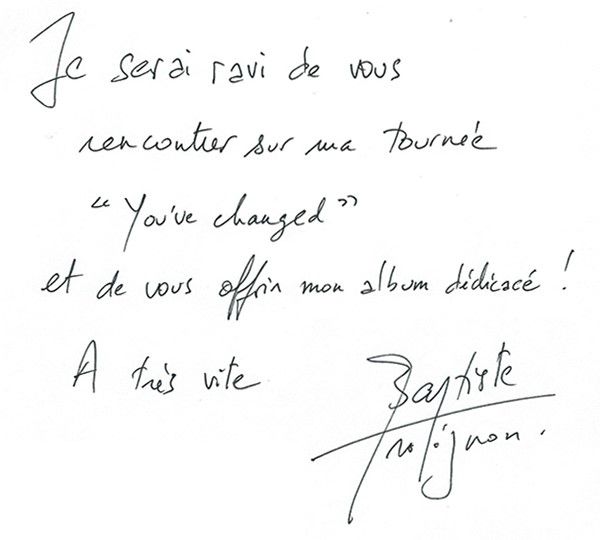 Je serai ravi de vous
rencontrer sur ma tournée
"You've changed"
et de vous offrir mon album dédicacé !
A très vite
Baptiste
Trotignon.